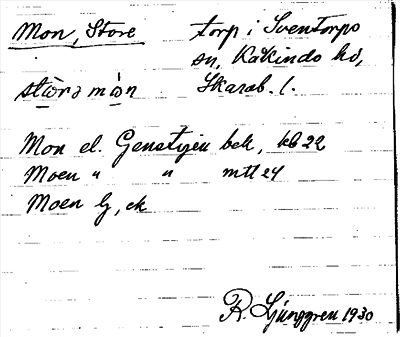 Mon, Store torp i Sventorps
sn, Kåkindo hd,
stòra mòn Skarab. l.
Mon el. Genstigen bek, kb 22
Moen " " mtl 24
Moen lj, ek
R. Ljunggren 1930